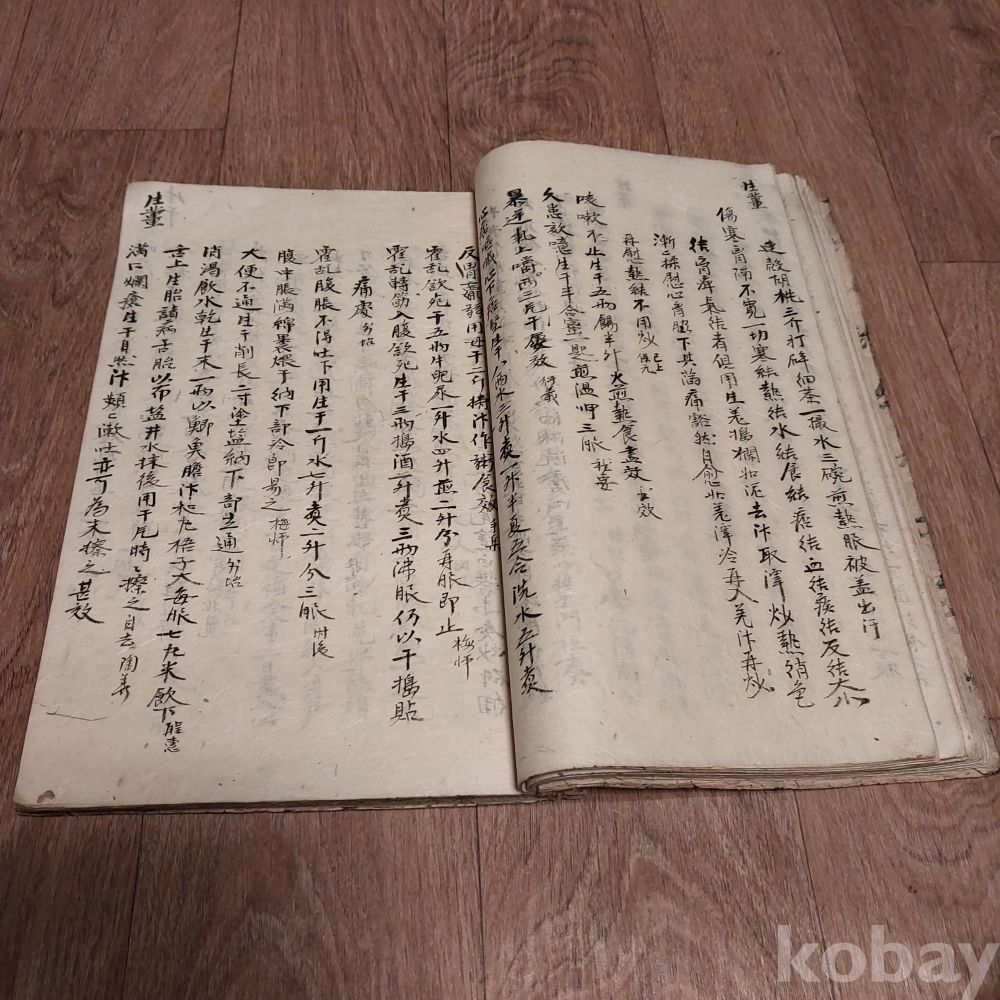 生薑
連殼胡桃三介打碎細茶一撮水三碗煎熱服被盖出行
傷寒胃隔不寬一切寒結熱結水結食結痰結血結痰結及結大小
結胃痺氣結者但用生羌搗爛如泥去汁取滓炒熱綃包
漸々揉慰心胃腋下其胸痛豁然自愈如羌滓冷再入羌汁再炒
再慰熱結不用炒 已上保元
咳嗽不止生干五兩餳半升火煎熱食盡效
久患放噫生干半合蜜一匙煎溫呷三服
暴逆氣上嚼兩三片干屢效
半夏五合洗水五升煑
反胃羸弱用母干二斤搗汁作粥食效
霍乱欲死干五兩牛肥尿一升水四升煎二升分再服即止 梅师
霍乱轉筋入腹欲死生干三兩搗酒一升煑三兩沸服仍以干搗貼
痛處
霍乱腹脹不得吐下用生干一斤水一升煑一升分三服
腹中脹滿綿裹煨干納下部冷即易之 梅师
大便不通生干削長二寸塗盐納下部立通
消渴飲水乾生干末一兩以鯽魚膽汁和丸梧子大每服七丸米飲下
舌上生胎諸病舌胎以布盐井水抹後用干片時々擦之自去 陶華
滿口爛瘡生干自然汁頻々漱吐亦可為末擦之甚效
生薑
kobay